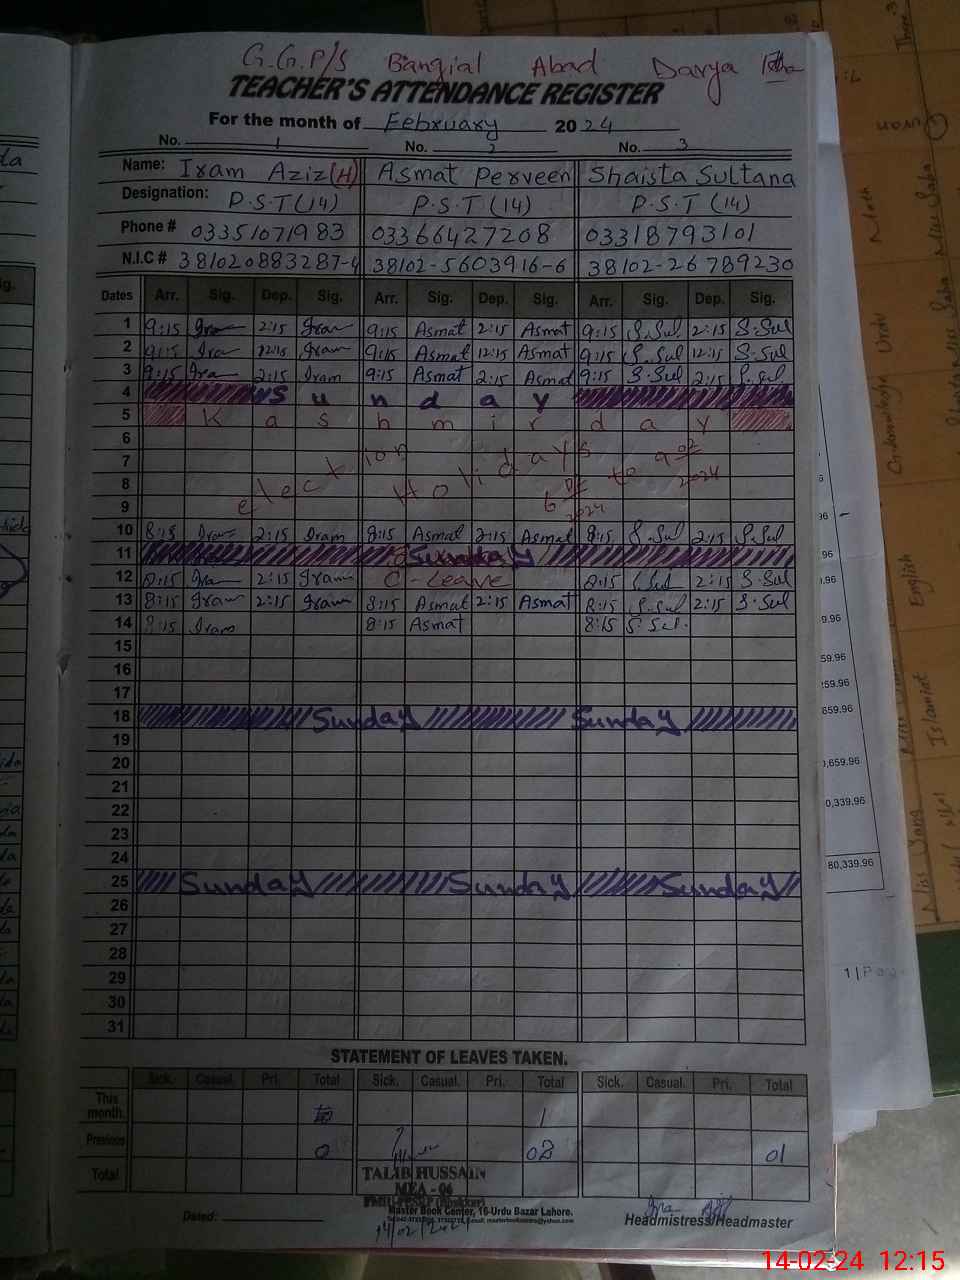 G.G.P/S Bangial Abad Darya Kha
TEACHER'S ATTENDANCE REGISTER
For the month of February 2024
No. 1 No. 2 No. 3
Name: Iram Aziz(H) Asmat Perveen Shaista Sultana
Designation: P.S.T(14) P.S.T(14) P.S.T(14)
Phone # 03351071983 03366427208 03318793101
N.I.C # 38102-5603916-6 38102-26789230
Dates Arr. Sig. Dep. Sig. Arr. Sig. Dep. Sig. Arr. Sig. Dep. Sig.
1 9:15 Iram 2:15 Iram 9:15 Asmat 2:15 Asmat 9:15 S.Sul 2:15 S.Sul
2 9:15 Iram 12:15 Iram 9:15 Asmat 12:15 Asmat 9:15 S.Sul 12:15 S.Sul
3 9:15 Iram 2:15 Iram 9:15 Asmat 2:15 Asmat 9:15 S.Sul 2:15 S.Sul
4 Sunday
5 Kashmir day
6
7
8 election Holidays 6 02 2024 to 9 02 2024
9
10 8:15 Iram 2:15 Iram 8:15 Asmat 2:15 Asmat 8:15 S.Sul 2:15 S.Sul
11 Sunday
12 8:15 Iram 2:15 Iram C-Leave 8:15 S.Sul 2:15 S.Sul
13 8:15 Iram 2:15 Iram 8:15 Asmat 2:15 Asmat 8:15 S.Sul 2:15 S.Sul
14 8:15 Iram 8:15 Asmat 8:15 S.Sul
15
16
17
18 Sunday Sunday
19
20
21
22
23
24
25 Sunday Sunday Sunday
26
27
28
29
30
31
STATEMENT OF LEAVES TAKEN.
Sick. Casual. Pri. Total Sick. Casual. Pri. Total Sick. Casual. Pri. Total
This month. 1
Previous 0 01
Total
TALIB HUSSAIN
MEA - 06
Master Book Center, 16-Urdu Bazar Lahore.
Dated:
14/02/2024
Headmistress/Headmaster
659.96
,659.96
0,339.96
80,339.96
1 | P a g
Urdu
Math
English
Islamiat
14-02-24 12:15